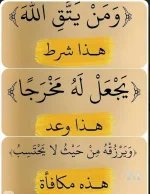 ﴿وَمَنْ يَتَّقِ اللَّهَ﴾
هذا شرط
﴿يَجْعَلْ لَهُ مَخْرَجًا﴾
هذا وعد
﴿وَيَرْزُقْهُ مِنْ حَيْثُ لَا يَحْتَسِبُ﴾
هذه مكافأة